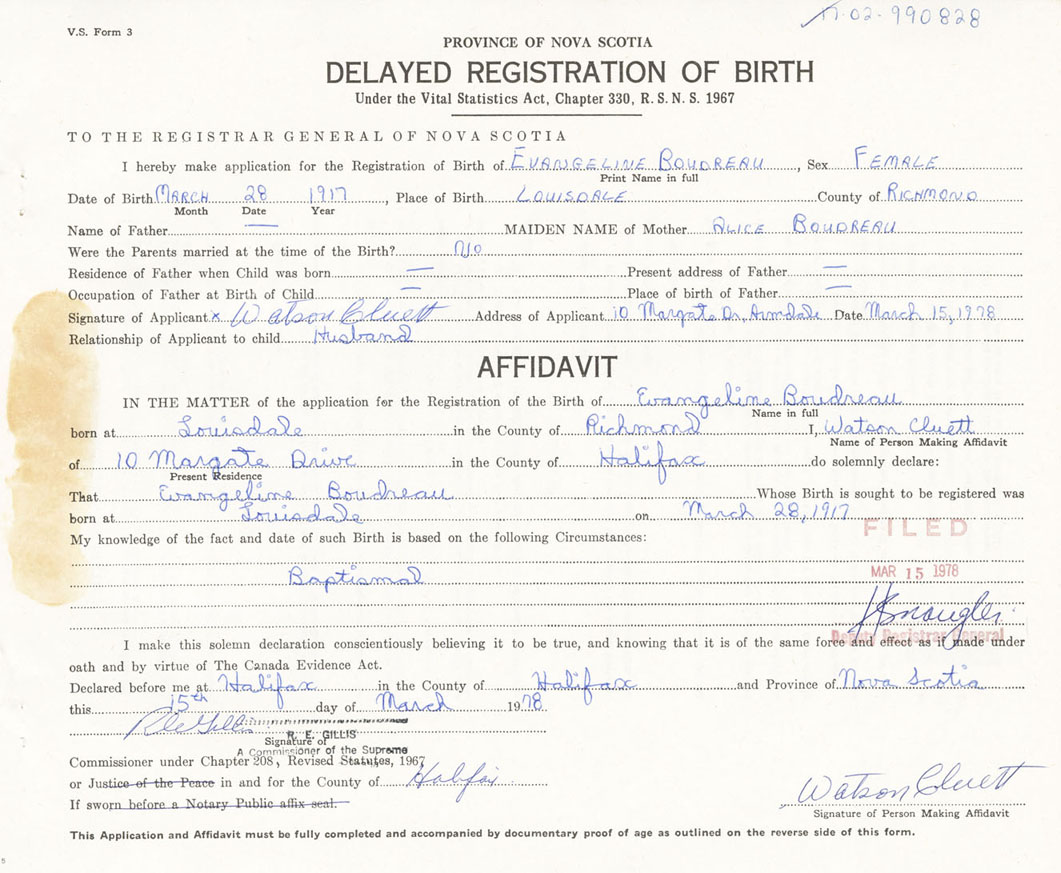 17-02-990828
V.S. Form 3
PROVINCE OF NOVA SCOTIA
DELAYED REGISTRATION OF BIRTH
Under the Vital Statistics Act, Chapter 330, R.S.N.S. 1967
TO THE REGISTRAR GENERAL OF NOVA SCOTIA
I hereby make application for the Registration of Birth of EVANGELINE BOUDREAU, Sex FEMALE
Print Name in full
Date of Birth MARCH 28 1917, Place of Birth LOUISDALE County of RICHMOND
Month Date Year
Name of Father — MAIDEN NAME of Mother ALICE BOUDREAU
Were the Parents married at the time of the Birth? NO
Residence of Father when Child was born — Present address of Father —
Occupation of Father at Birth of Child — Place of birth of Father —
Signature of Applicant x Watson Cluett Address of Applicant 10 Margate Dr, Armdale Date March 15, 1978
Relationship of Applicant to child Husband
AFFIDAVIT
IN THE MATTER of the application for the Registration of the Birth of Evangeline Boudreau
Name in full
born at Louisdale in the County of Richmond I, Watson Cluett
Name of Person Making Affidavit
of 10 Margate Drive in the County of Halifax do solemnly declare:
Present Residence
That Evangeline Boudreau Whose Birth is sought to be registered was
born at Louisdale on March 28, 1917
FILED
My knowledge of the fact and date of such Birth is based on the following Circumstances:
Baptismal
MAR 15 1978
Deputy Registrar General
I make this solemn declaration conscientiously believing it to be true, and knowing that it is of the same force and effect as if made under
oath and by virtue of The Canada Evidence Act.
Declared before me at Halifax in the County of Halifax and Province of Nova Scotia
this 15th day of March 1978
R E Gillis
R. E. GILLIS
Signature of
A Commissioner of the Supreme
Commissioner under Chapter 208, Revised Statutes, 1967
or Justice of the Peace in and for the County of Halifax
If sworn before a Notary Public affix seal.
Watson Cluett
Signature of Person Making Affidavit
This Application and Affidavit must be fully completed and accompanied by documentary proof of age as outlined on the reverse side of this form.